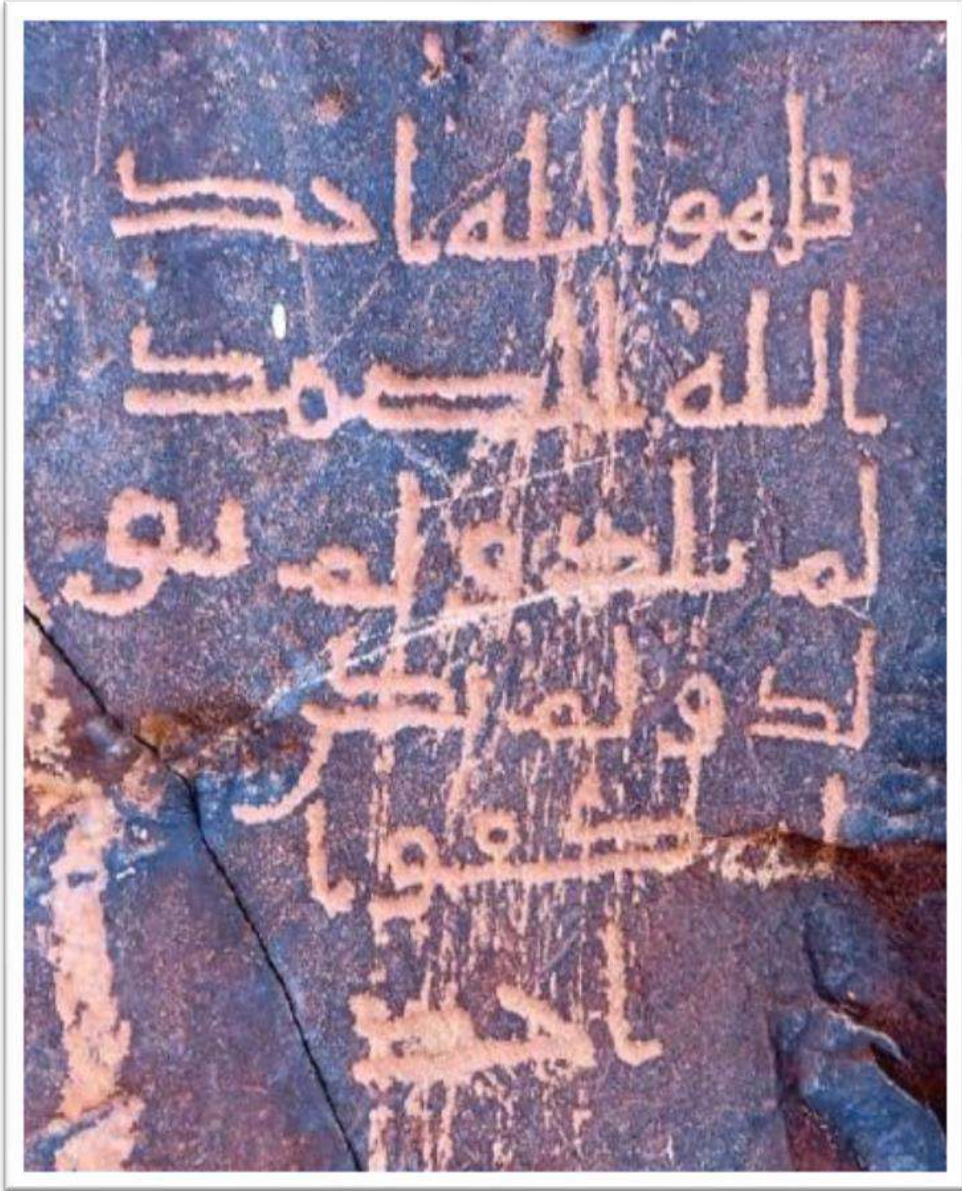 قل هو الله احد
الله الصمد
لم يلد و لم يو
لد و لم يكن
له كفوا
احد